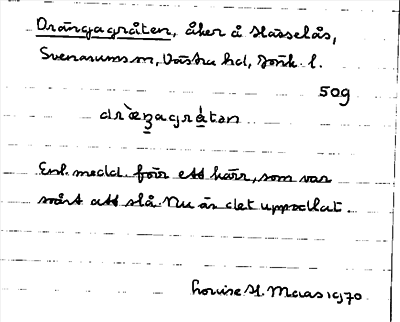 Drängagråten, åker å Hässelås,
Svenarums sn, Västra hd, Jönk. l.
509
dræ̀ŋagrå̀tən
Enl. medd. förr ett kärr, som var
svårt att slå. Nu är det uppodlat.
Louise H. Maas 1970